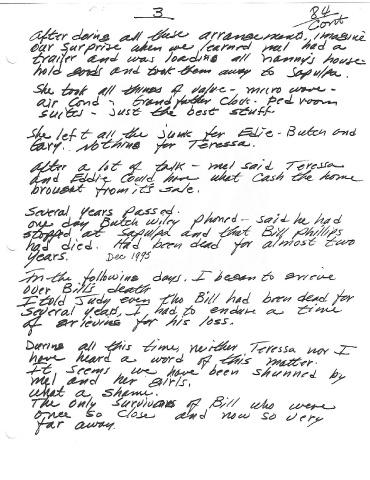 3
84
Cont
After doing all these arrangements, imagine
our surprise when we learned Mel had a
trailer and was loading all nanny's house-
hold goods and took them away to Sapulpa.
She took all things of value - micro wave -
air cond - grandfather clock. Bed room
suites - just the best stuff
She left all the junk for Edie - Butch and
Gary. Nothing for Teressa.
After a lot of talk - Mel said Teressa
and Eddie could have what cash the home
brought from its sale.
Several years passed.
one day Butch Wiley phoned - said he had
stopped at Sapulpa and that Bill Phillips
had died. Had been dead for almost two
years. Dec 1995
In the following days. I began to grieve
over Bill's death
I told Judy even tho Bill had been dead for
several years, I had to endure a time
of grieving for his loss.
During all this time, neither Teressa nor I
have heard a word of this matter.
It seems we have been shunned by
Mel and her girls.
What a shame.
The only survivors of Bill who were
once so close and now so very
far away.